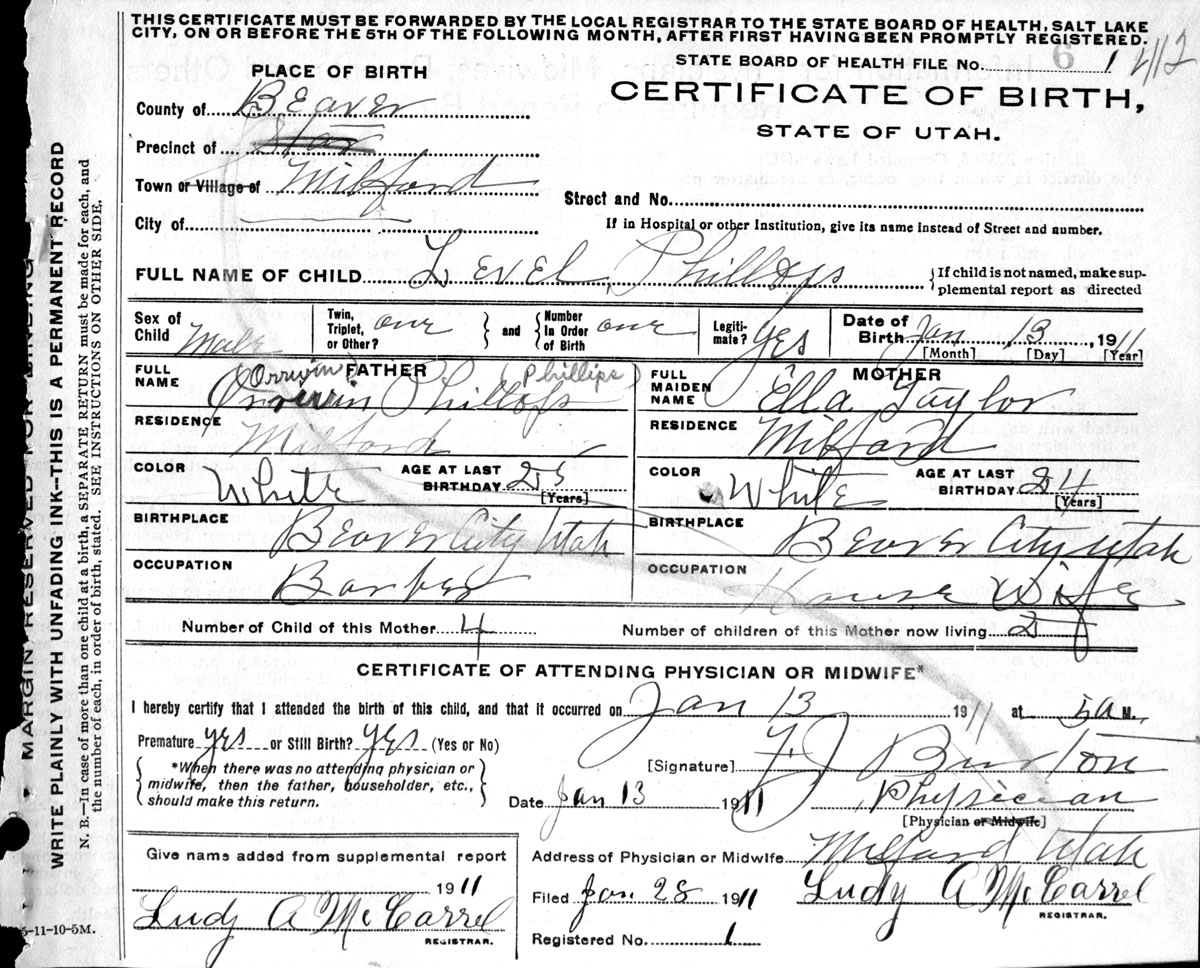 THIS CERTIFICATE MUST BE FORWARDED BY THE LOCAL REGISTRAR TO THE STATE BOARD OF HEALTH, SALT LAKE
CITY, ON OR BEFORE THE 5TH OF THE FOLLOWING MONTH, AFTER FIRST HAVING BEEN PROMPTLY REGISTERED.
STATE BOARD OF HEALTH FILE No. 6 1
PLACE OF BIRTH
CERTIFICATE OF BIRTH,
STATE OF UTAH.
County of Beaver
Precinct of Star
Town or Village of Milford
Street and No.
City of
If in Hospital or other Institution, give its name Instead of Street and number.
FULL NAME OF CHILD Level Phillops
{If child is not named, make sup-
plemental report as directed
Sex of Child Male
Twin, Triplet, or Other? one } and { Number In Order of Birth one
Legiti-mate? Yes
Date of Birth Jan 13, 1911
[Month] [Day] [Year]
FATHER
FULL NAME Orrwin Phillops
Orrwin (Phillips)
RESIDENCE Milford
COLOR White
AGE AT LAST BIRTHDAY 25
[Years]
BIRTHPLACE Beaver City Utah
OCCUPATION Barber
MOTHER
FULL MAIDEN NAME Ella Taylor
RESIDENCE Milford
COLOR White
AGE AT LAST BIRTHDAY 24
[Years]
BIRTHPLACE Beaver City Utah
OCCUPATION House Wife
Number of Child of this Mother 4
Number of children of this Mother now living 2
CERTIFICATE OF ATTENDING PHYSICIAN OR MIDWIFE*
I hereby certify that I attended the birth of this child, and that it occurred on Jan 13 1911 at 5 A M.
Premature yes or Still Birth? yes (Yes or No)
{ *When there was no attending physician or
midwife, then the father, householder, etc.,
should make this return. }
[Signature] Burton
Date Jan 13 1911 Physician
[Physician or Midwife]
Give name added from supplemental report
1911
Ludy A McCarrel
REGISTRAR.
Address of Physician or Midwife Milford Utah
Filed Jan 28 1911 Ludy A McCarrel
REGISTRAR.
Registered No. 1
5-11-10-5M.
MARGIN RESERVED FOR BINDING
WRITE PLAINLY WITH UNFADING INK—THIS IS A PERMANENT RECORD
N. B.—In case of more than one child at a birth a SEPARATE RETURN must be made for each, and
the number of each, in order of birth, stated. SEE INSTRUCTIONS ON OTHER SIDE.